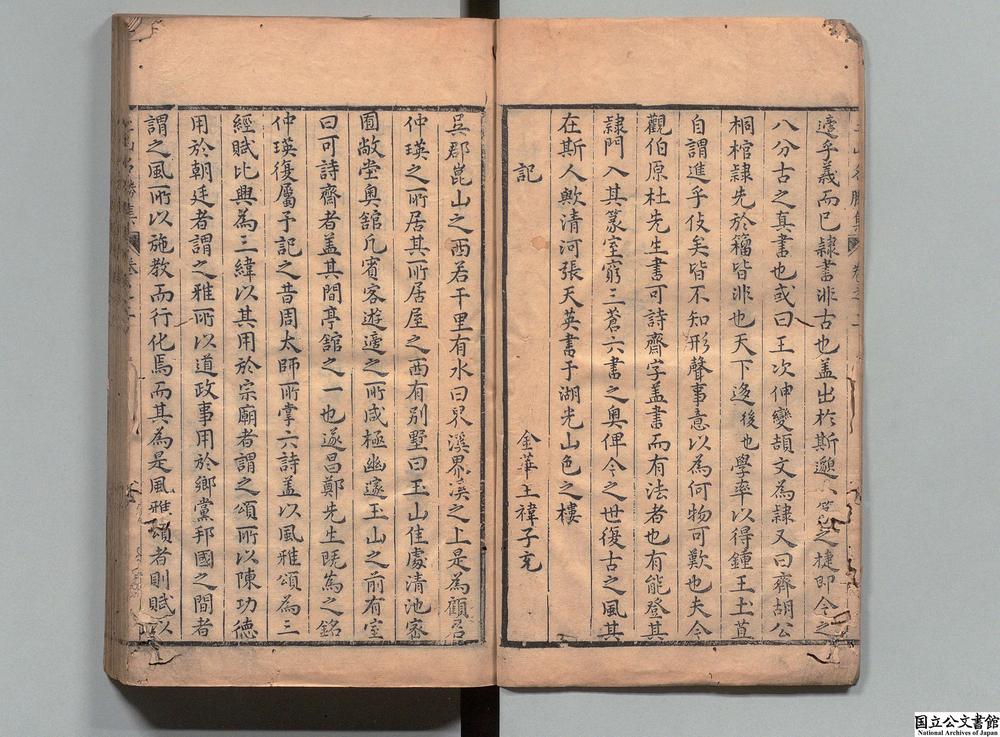 適乎義而已隷書非古也盖出於斯邈之捷即今之
八分古之真書也或曰王次仲變頡文為隷又曰齊胡公
桐棺隷先於籀皆非也天下逐後也學率以得鍾王土苴
自謂進乎伎矣皆不知形聲事意以為何物可歎也夫今
觀伯原杜先生書可詩齋字盖書而有法者也有能登其
隷門入其篆室窮三蒼六書之奥俾今之世復古之風其
在斯人歟清河張天英書于湖光山色之樓
記
金華王褘子充
吳郡崑山之西若干里有水曰界溪界溪之上是為顧君
仲瑛之所居其所居屋之西有别墅曰玉山佳處清池宻
囿敞堂奥舘凢賓客遊適之所咸極幽邃玉山之前有室
曰可詩齋者盖其間亭舘之一也遂昌鄭先生旣為之銘
仲瑛復屬予記之昔周太師所掌六詩盖以風雅頌為三
經賦比興為三緯以其用於宗廟者謂之頌所以陳功徳
用於朝廷者謂之雅所以道政事用於鄉黨邦國之間者
謂之風所以施教而行化焉而其為是風雅頌者則賦以
国立公文書館
National Archives of Japan